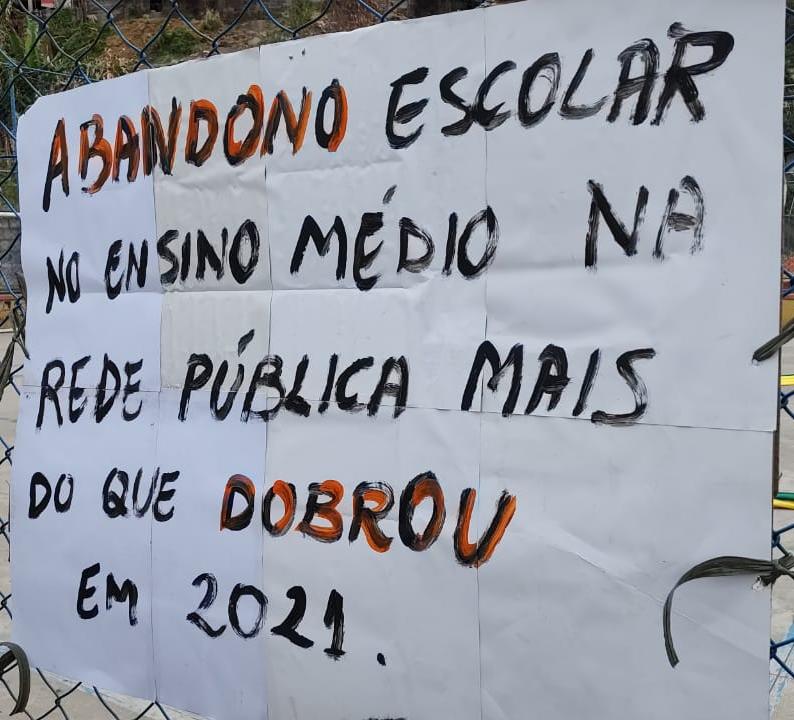 ABANDONO ESCOLAR
NO ENSINO MÉDIO NA
REDE PÚBLICA MAIS
DO QUE DOBROU
EM 2021.